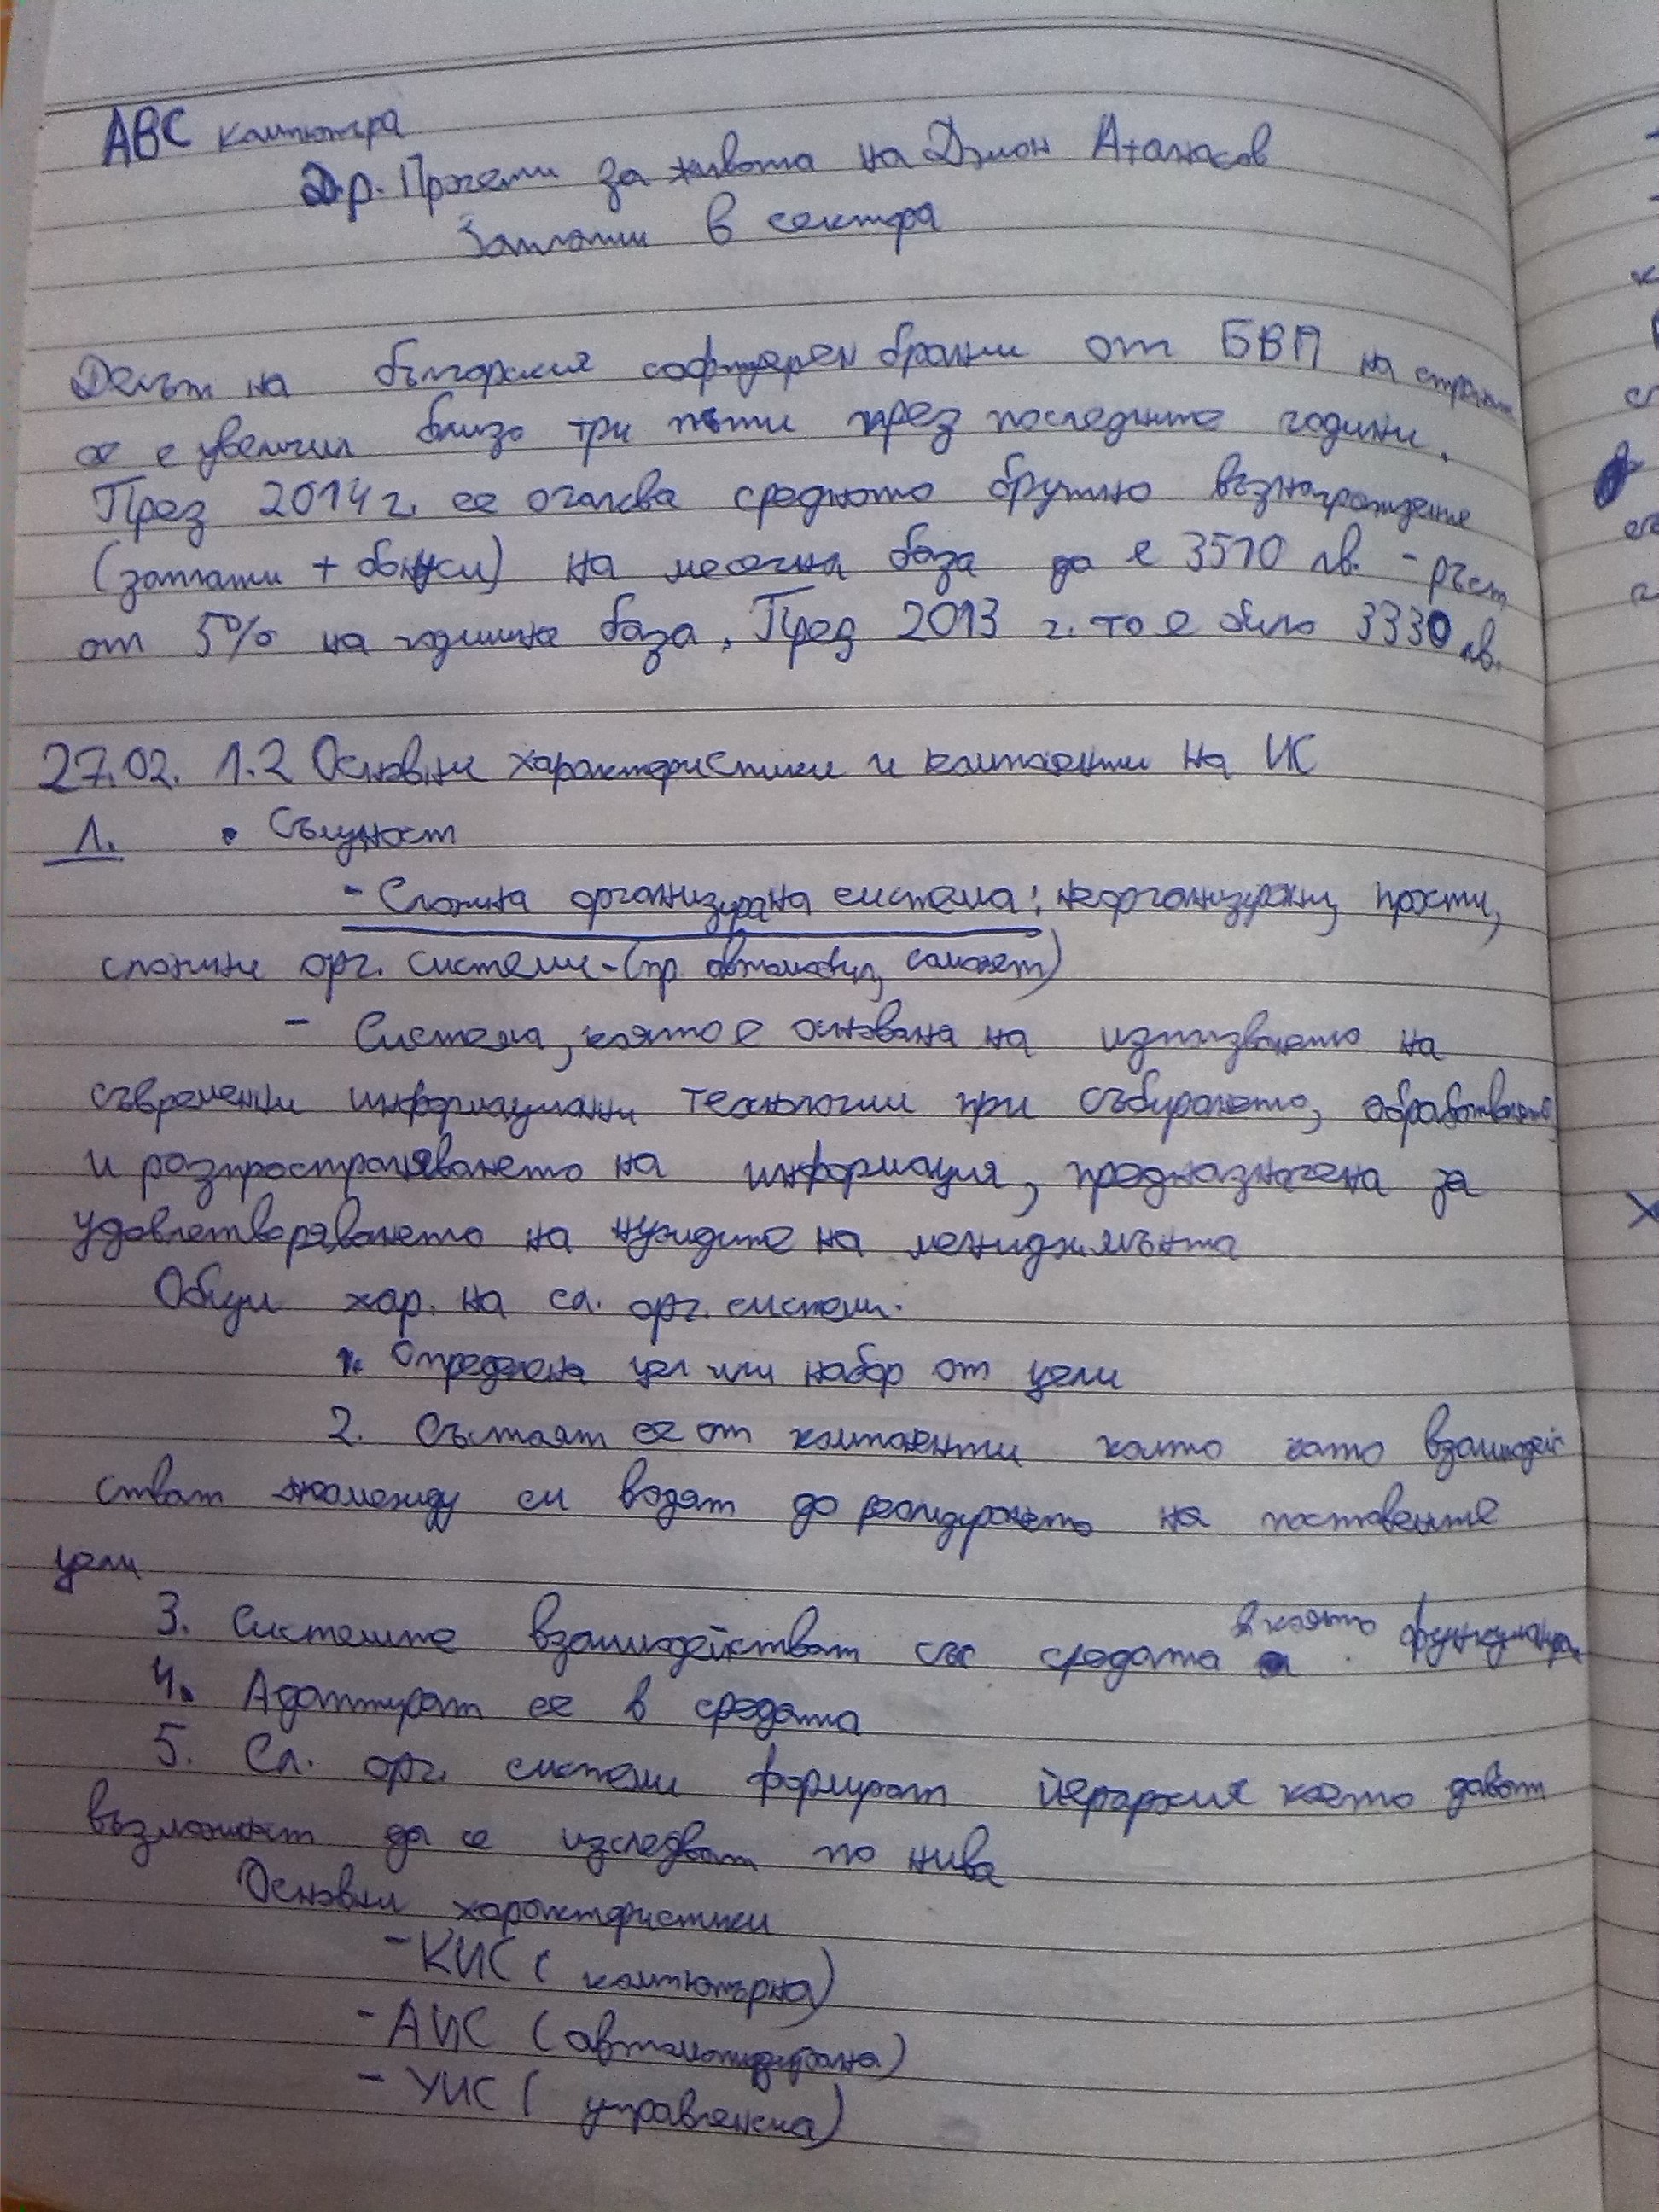 ABC компютъра
Др. Прочети за живота на Джон Атанасов
Заплати в сектора
Делът на българския софтуерен бранш от БВП на страната
се е увеличил близо три пъти през последните години.
През 2014 г. се очаква средното брутно възнаграждение
(заплати + бонуси) на месечна база да е 3510 лв. - ръст
от 5% на годишна база. През 2013 г. то е било 3330 лв.
27.02. 1.2 Основни характеристики и компоненти на ИС
1. • Същност
- Сложна организирана система: неорганизирани, прости,
сложни орг. системи - (пр. автомобил, самолет)
- Система, която е основана на използването на
съвременни информационни технологии при събирането, обработването
и разпространяването на информация, предназначена за
удовлетворяването на нуждите на мениджмънта
Общи хар. на сл. орг. системи.
1. Определена цел или набор от цели
2. Състоят се от компоненти които като взаимодей
стват помежду си водят до реализирането на поставените
цели
3. Системите взаимодействат със средата в която функционират
4. Адаптират се в средата
5. Сл. орг. системи формират йерархия което дават
възможност да се изследват по нива
Основни характеристики
- КИС (компютърна)
- АИС (автоматизирана)
- УИС (управленска)